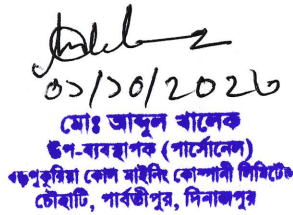 ০১/১০/২০২৩
মোঃ আব্দুল খালেক
উপ-ব্যবস্থাপক (পার্সোনেল)
বড়পুকুরিয়া কোল মাইনিং কোম্পানী লিমিটেড
চৌহাটি, পার্বতীপুর, দিনাজপুর